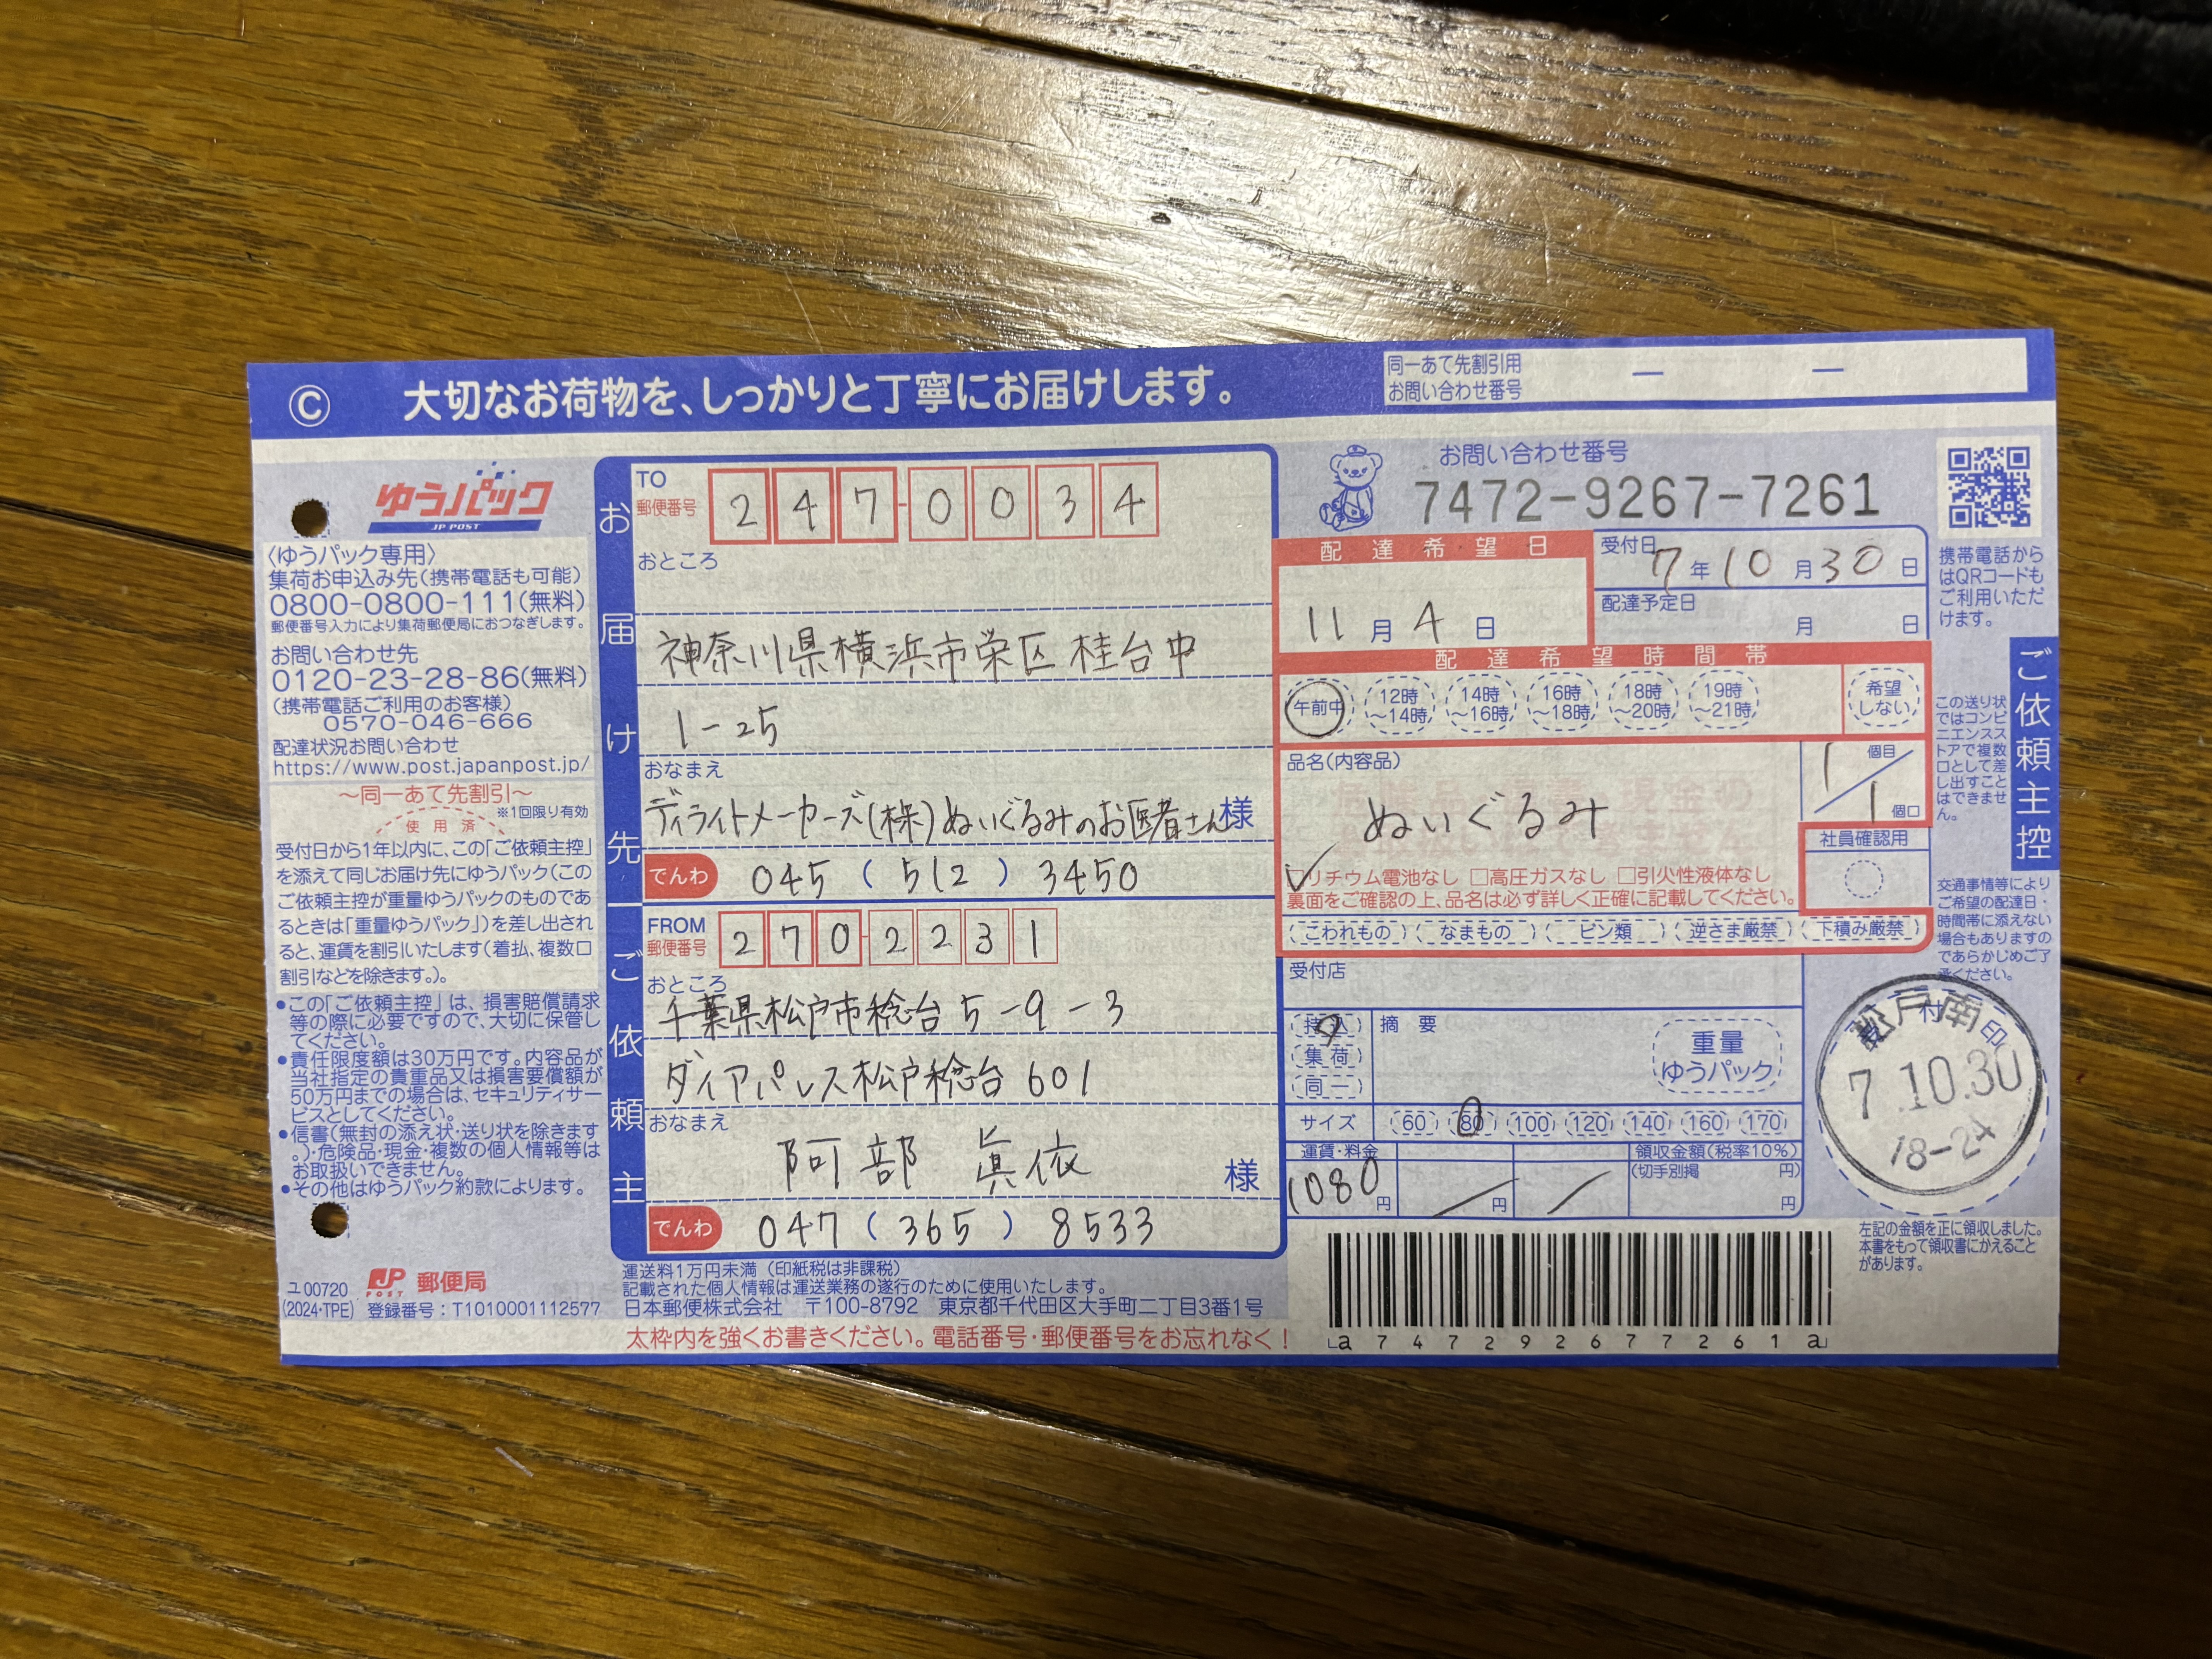 Ⓒ 大切なお荷物を、しっかりと丁寧にお届けします。
同一あて先割引用
お問い合わせ番号 ー ー
ゆうパック
JP POST
〈ゆうパック専用〉
集荷お申込み先(携帯電話も可能)
0800-0800-111(無料)
郵便番号入力により集荷郵便局におつなぎします。
お問い合わせ先
0120-23-28-86(無料)
(携帯電話ご利用のお客様)
0570-046-666
配達状況お問い合わせ
https://www.post.japanpost.jp/
～同一あて先割引～
※1回限り有効
使用済
受付日から1年以内に、この「ご依頼主控」
を添えて同じお届け先にゆうパック(この
ご依頼主控が重量ゆうパックのものであ
るときは「重量ゆうパック」)を差し出され
ると、運賃を割引いたします(着払、複数口
割引などを除きます。)。
●この「ご依頼主控」は、損害賠償請求
等の際に必要ですので、大切に保管し
てください。
●責任限度額は30万円です。内容品が
当社指定の貴重品又は損害要償額が
50万円までの場合は、セキュリティサー
ビスとしてください。
●信書(無封の添え状・送り状を除きます
。)・危険品・現金・複数の個人情報等は
お取扱いできません。
●その他はゆうパック約款によります。
ユ00720
(2024・TPE)
JP POST 郵便局
登録番号：T1010001112577
お届け先
TO
郵便番号 247-0034
おところ
神奈川県横浜市栄区桂台中
1-25
おなまえ
ディライトメーカーズ(株)ぬいぐるみのお医者さん様
でんわ 045 ( 512 ) 3450
ご依頼主
FROM
郵便番号 270-2231
おところ
千葉県松戸市稔台5-9-3
ダイアパレス松戸稔台601
おなまえ
阿部 眞依 様
でんわ 047 ( 365 ) 8533
運送料1万円未満(印紙税は非課税)
記載された個人情報は運送業務の遂行のために使用いたします。
日本郵便株式会社 〒100-8792 東京都千代田区大手町二丁目3番1号
太枠内を強くお書きください。電話番号・郵便番号をお忘れなく！
お問い合わせ番号
7472-9267-7261
配達希望日
11月4日
受付日
7年10月30日
配達予定日
月 日
配達希望時間帯
午前中
12時～14時
14時～16時
16時～18時
18時～20時
19時～21時
希望しない
品名(内容品)
ぬいぐるみ
1個目／1個口
社員確認用
□リチウム電池なし □高圧ガスなし □引火性液体なし
裏面をご確認の上、品名は必ず詳しく正確に記載してください。
こわれもの なまもの ビン類 逆さま厳禁 下積み厳禁
受付店
持込
集荷
同一
摘要
重量
ゆうパック
サイズ 60 80 100 120 140 160 170
運賃・料金
1080円
円
領収金額(税率10%)
(切手別掲 円)
円
a747292677261a
携帯電話から
はQRコードも
ご利用いただ
けます。
ご依頼主控
この送り状
ではコンビ
ニエンスス
トアで複数
口として差
し出すこと
はできませ
ん。
交通事情等により
ご希望の配達日・
時間帯に添えない
場合もありますの
であらかじめご了
承ください。
松戸南
7.10.30
18-24
左記の金額を正に領収しました。
本書をもって領収書にかえること
があります。